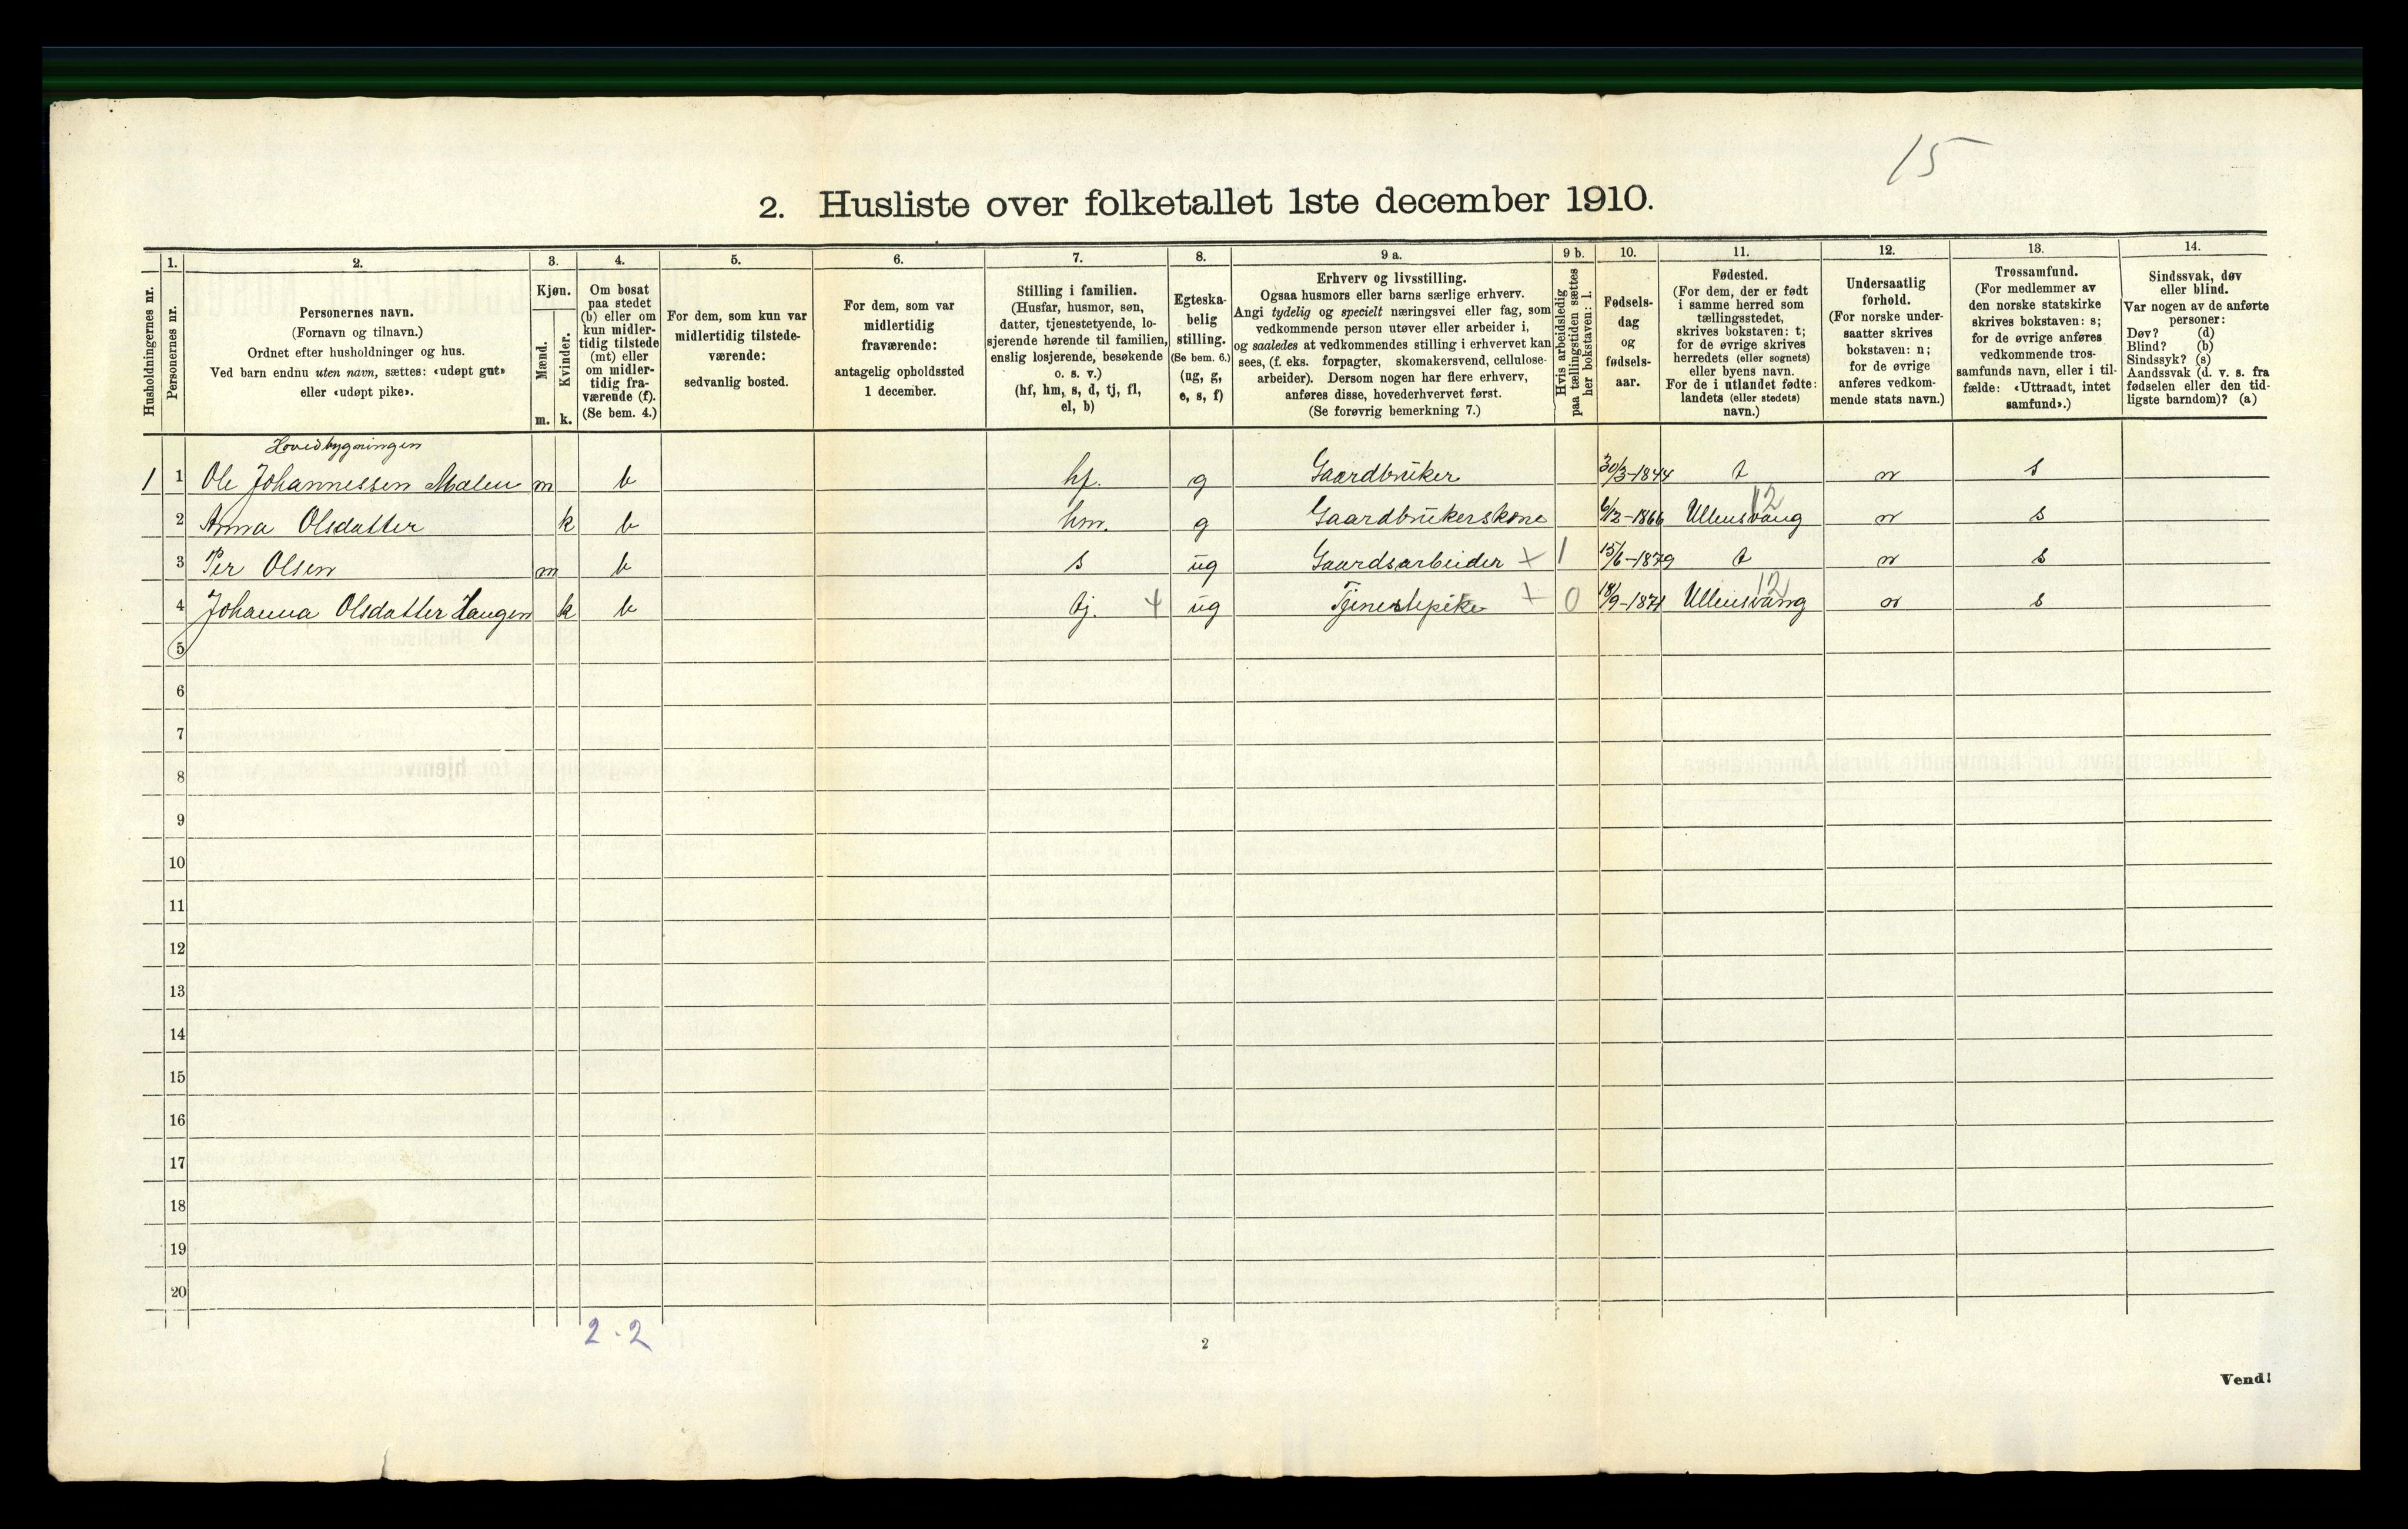 15
2. Husliste over folketallet 1ste december 1910.
Husholdningernes nr.
1.
Personernes nr.
2.
Personernes navn.
(Fornavn og tilnavn.)
Ordnet efter husholdninger og hus.
Ved barn endnu uten navn, sættes: «udøpt gut»
eller «udøpt pike».
3.
Kjøn.
Mænd.
Kvinder.
m. k.
4.
Om bosat
paa stedet
(b) eller om
kun midler-
tidig tilstede
(mt) eller
om midler-
tidig fra-
værende (f).
(Se bem. 4.)
5.
For dem, som kun var
midlertidig tilstede-
værende:
sedvanlig bosted.
6.
For dem, som var
midlertidig
fraværende:
antagelig opholdssted
1 december.
7.
Stilling i familien.
(Husfar, husmor, søn,
datter, tjenestetyende, lo-
sjerende hørende til familien,
enslig losjerende, besøkende
o. s. v.)
(hf, hm, s, d, tj, fl,
el, b)
8.
Egteska-
belig
stilling.
(Se bem. 6.)
(ug, g,
e, s, f)
9 a.
Erhverv og livsstilling.
Ogsaa husmors eller barns særlige erhverv.
Angi tydelig og specielt næringsvei eller fag, som
vedkommende person utøver eller arbeider i,
og saaledes at vedkommendes stilling i erhvervet kan
sees, (f. eks. forpagter, skomakersvend, cellulose-
arbeider). Dersom nogen har flere erhverv,
anføres disse, hovederhvervet først.
(Se forøvrig bemerkning 7.)
9 b.
Hvis arbeidsledig
paa tællingstiden sættes
her bokstaven: l.
10.
Fødsels-
dag
og
fødsels-
aar.
11.
Fødested.
(For dem, der er født
i samme herred som
tællingsstedet,
skrives bokstaven: t;
for de øvrige skrives
herredets (eller sognets)
eller byens navn.
For de i utlandet fødte:
landets (eller stedets)
navn.)
12.
Undersaatlig
forhold.
(For norske under-
saatter skrives
bokstaven: n;
for de øvrige
anføres vedkom-
mende stats navn.)
13.
Trossamfund.
(For medlemmer av
den norske statskirke
skrives bokstaven: s;
for de øvrige anføres
vedkommende tros-
samfunds navn, eller i til-
fælde: «Uttraadt, intet
samfund».)
14.
Sindssvak, døv
eller blind.
Var nogen av de anførte
personer:
Døv? (d)
Blind? (b)
Sindssyk? (s)
Aandssvak (d. v. s. fra
fødselen eller den tid-
ligste barndom)? (a)
Hovedbygningen
1 1 Ole Johannessen Mælen m b hf. g Gaardbruker 30/3-1844 t n s
2 Anna Olsdatter k b hm. g Gaardbrukerskone 6/12-1866 Ullensvang 12 n s
3 Per Olsen m b s ug Gaardsarbeider + 1 15/6-1879 t n s
4 Johanna Olsdatter Haugen k b tj. 4 ug Tjenestepike + 0 18/9-1871 Ullensvang 12 n s
5
6
7
8
9
10
11
12
13
14
15
16
17
18
19
20
2-2
2
Vend!